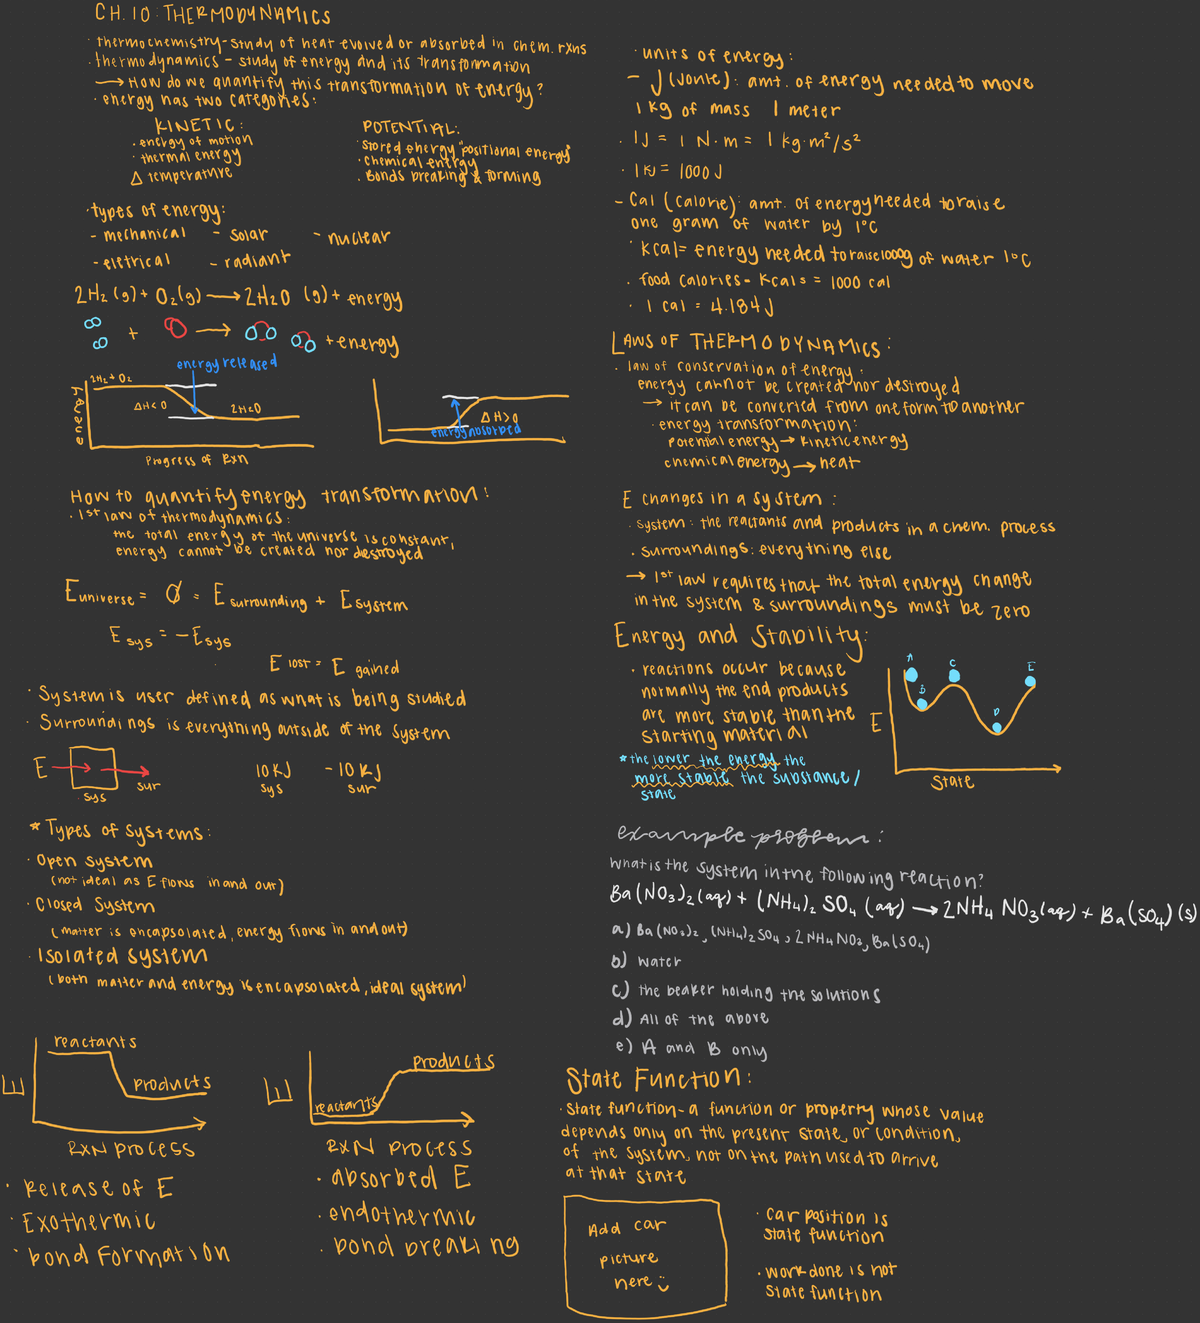 CH. 10: THERMODYNAMICS
· thermochemistry - study of heat evolved or absorbed in chem. rxns
· thermodynamics - study of energy and its transformation
→ How do we quantify this transformation of energy?
· energy has two categories:
KINETIC:
· energy of motion
· thermal energy
Δ temperature
POTENTIAL:
· stored energy "positional energy"
· chemical energy
· Bonds breaking & forming
· types of energy:
- mechanical - solar - nuclear
- eletrical - radiant
2H₂ (g) + O₂(g) → 2H₂O (g) + energy
+ → + energy
energy released
2H₂ + O₂
ΔH < 0
2H₂O
Progress of Rxn
ΔH > 0
energy absorbed
How to quantify energy transformation:
· 1st law of thermodynamics:
the total energy of the universe is constant,
energy cannot be created nor destroyed
E universe = Ø = E surrounding + E system
E sys = - E sys
E lost = E gained
· System is user defined as what is being studied
· Surroundings is everything outside of the system
E
sys
sur
10 KJ - 10 KJ
sys sur
* Types of systems:
· Open system
(not ideal as E flows in and out)
· Closed System
(matter is encapsolated, energy flows in and out)
· Isolated system
(both matter and energy is encapsolated, ideal system)
reactants
products
E
RXN process
· Release of E
· Exothermic
· bond formation
products
reactants
E
RXN process
· absorbed E
· endothermic
· bond breaking
· units of energy:
- J (Joule): amt. of energy needed to move
1 kg of mass 1 meter
· 1J = 1 N·m = 1 kg·m²/s²
· 1 KJ = 1000 J
- Cal (calorie): amt. of energy needed to raise
one gram of water by 1°C
· Kcal = energy needed to raise 1000g of water 1°C
· food calories - Kcals = 1000 cal
· 1 cal = 4.184 J
LAWS OF THERMODYNAMICS:
· law of conservation of energy:
energy cannot be created nor destroyed
→ it can be converted from one form to another
· energy transformation:
potential energy → kinetic energy
chemical energy → heat
E changes in a system:
· System: the reactants and products in a chem. process
· surroundings: everything else
→ 1st law requires that the total energy change
in the system & surroundings must be zero
Energy and Stability:
· reactions occur because
normally the end products
are more stable than the
starting material
* the lower the energy the
more stable the substance/
state
A
B
C
D
E
E
State
example problem:
What is the system in the following reaction?
Ba(NO₃)₂ (aq) + (NH₄)₂ SO₄ (aq) → 2NH₄ NO₃ (aq) + Ba(SO₄) (s)
a) Ba(NO₃)₂, (NH₄)₂ SO₄, 2 NH₄ NO₃, Ba(SO₄)
b) water
c) the beaker holding the solutions
d) All of the above
e) A and B only
State Function:
· State function - a function or property whose value
depends only on the present state, or condition,
of the system, not on the path used to arrive
at that state
Add car
picture
here
· car position is
state function
· work done is not
state function